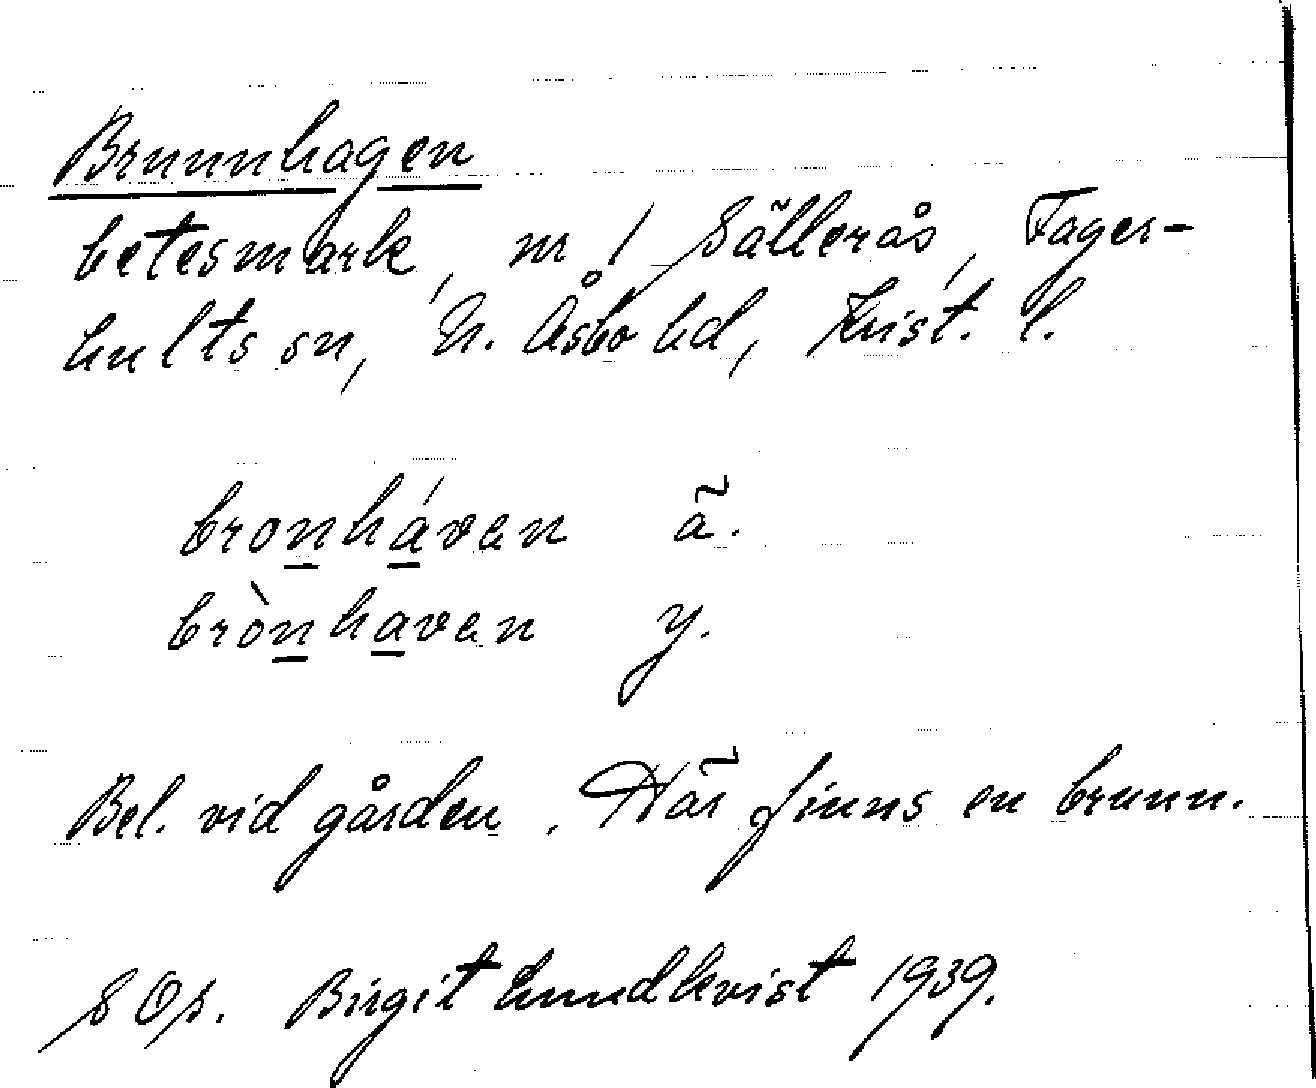 Brunnhagen
betesmark, nr 1 Sällerås, Fager-
hults sn, N. Åsbo hd, Krist. l.
bronháven ä.
brònhaven y.
Bel. vid gården. Här finns en brunn.
SOp. Birgit Lundkvist 1939.